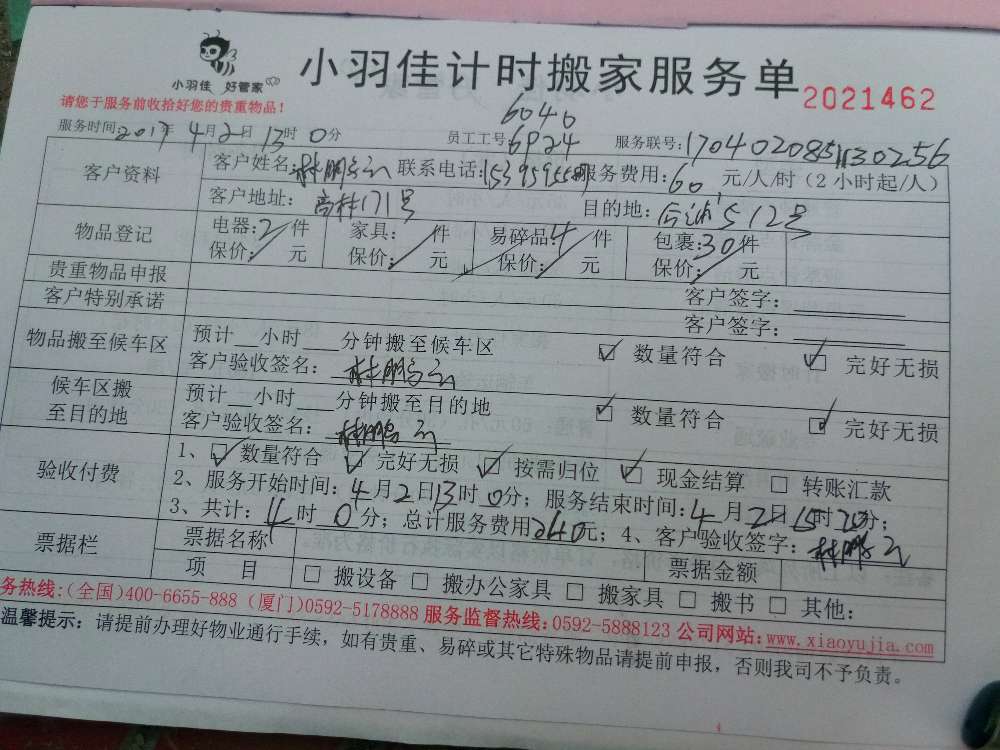 小羽佳 好管家
小羽佳计时搬家服务单
2021462
请您于服务前收拾好您的贵重物品！
6040
服务时间:2017年4月2日13时0分 员工工号6P24 服务联号:
客户资料 客户姓名: 联系电话: 服务费用:60元/人/时（2小时起/人）
客户地址：高林171号 目的地： 512号
物品登记 电器:2件 家具:/件 易碎品:4件 包裹:30件
保价:/元 保价:/元 保价:/元 保价:/元
贵重物品申报 客户签字：
客户特别承诺 客户签字：
物品搬至候车区 预计__小时___分钟搬至候车区 ☑ 数量符合 ☑ 完好无损
客户验收签名：
候车区搬至目的地 预计__小时___分钟搬至目的地 ☑ 数量符合 ☑ 完好无损
客户验收签名：
验收付费 1、☑数量符合 ☑完好无损 ☑按需归位 ☑现金结算 □转账汇款
2、服务开始时间:4月2日13时0分；服务结束时间:4月2日15时20分；
3、共计:4时0分；总计服务费用240元；4、客户验收签字：
票据栏 票据名称 票据金额
项 目 □ 搬设备 □ 搬办公家具 □ 搬家具 □ 搬书 □ 其他：
务热线:(全国)400-6655-888 (厦门)0592-5178888 服务监督热线:0592-5888123 公司网站:www.xiaoyujia.com
温馨提示：请提前办理好物业通行手续，如有贵重、易碎或其它特殊物品请提前申报，否则我司不予负责。